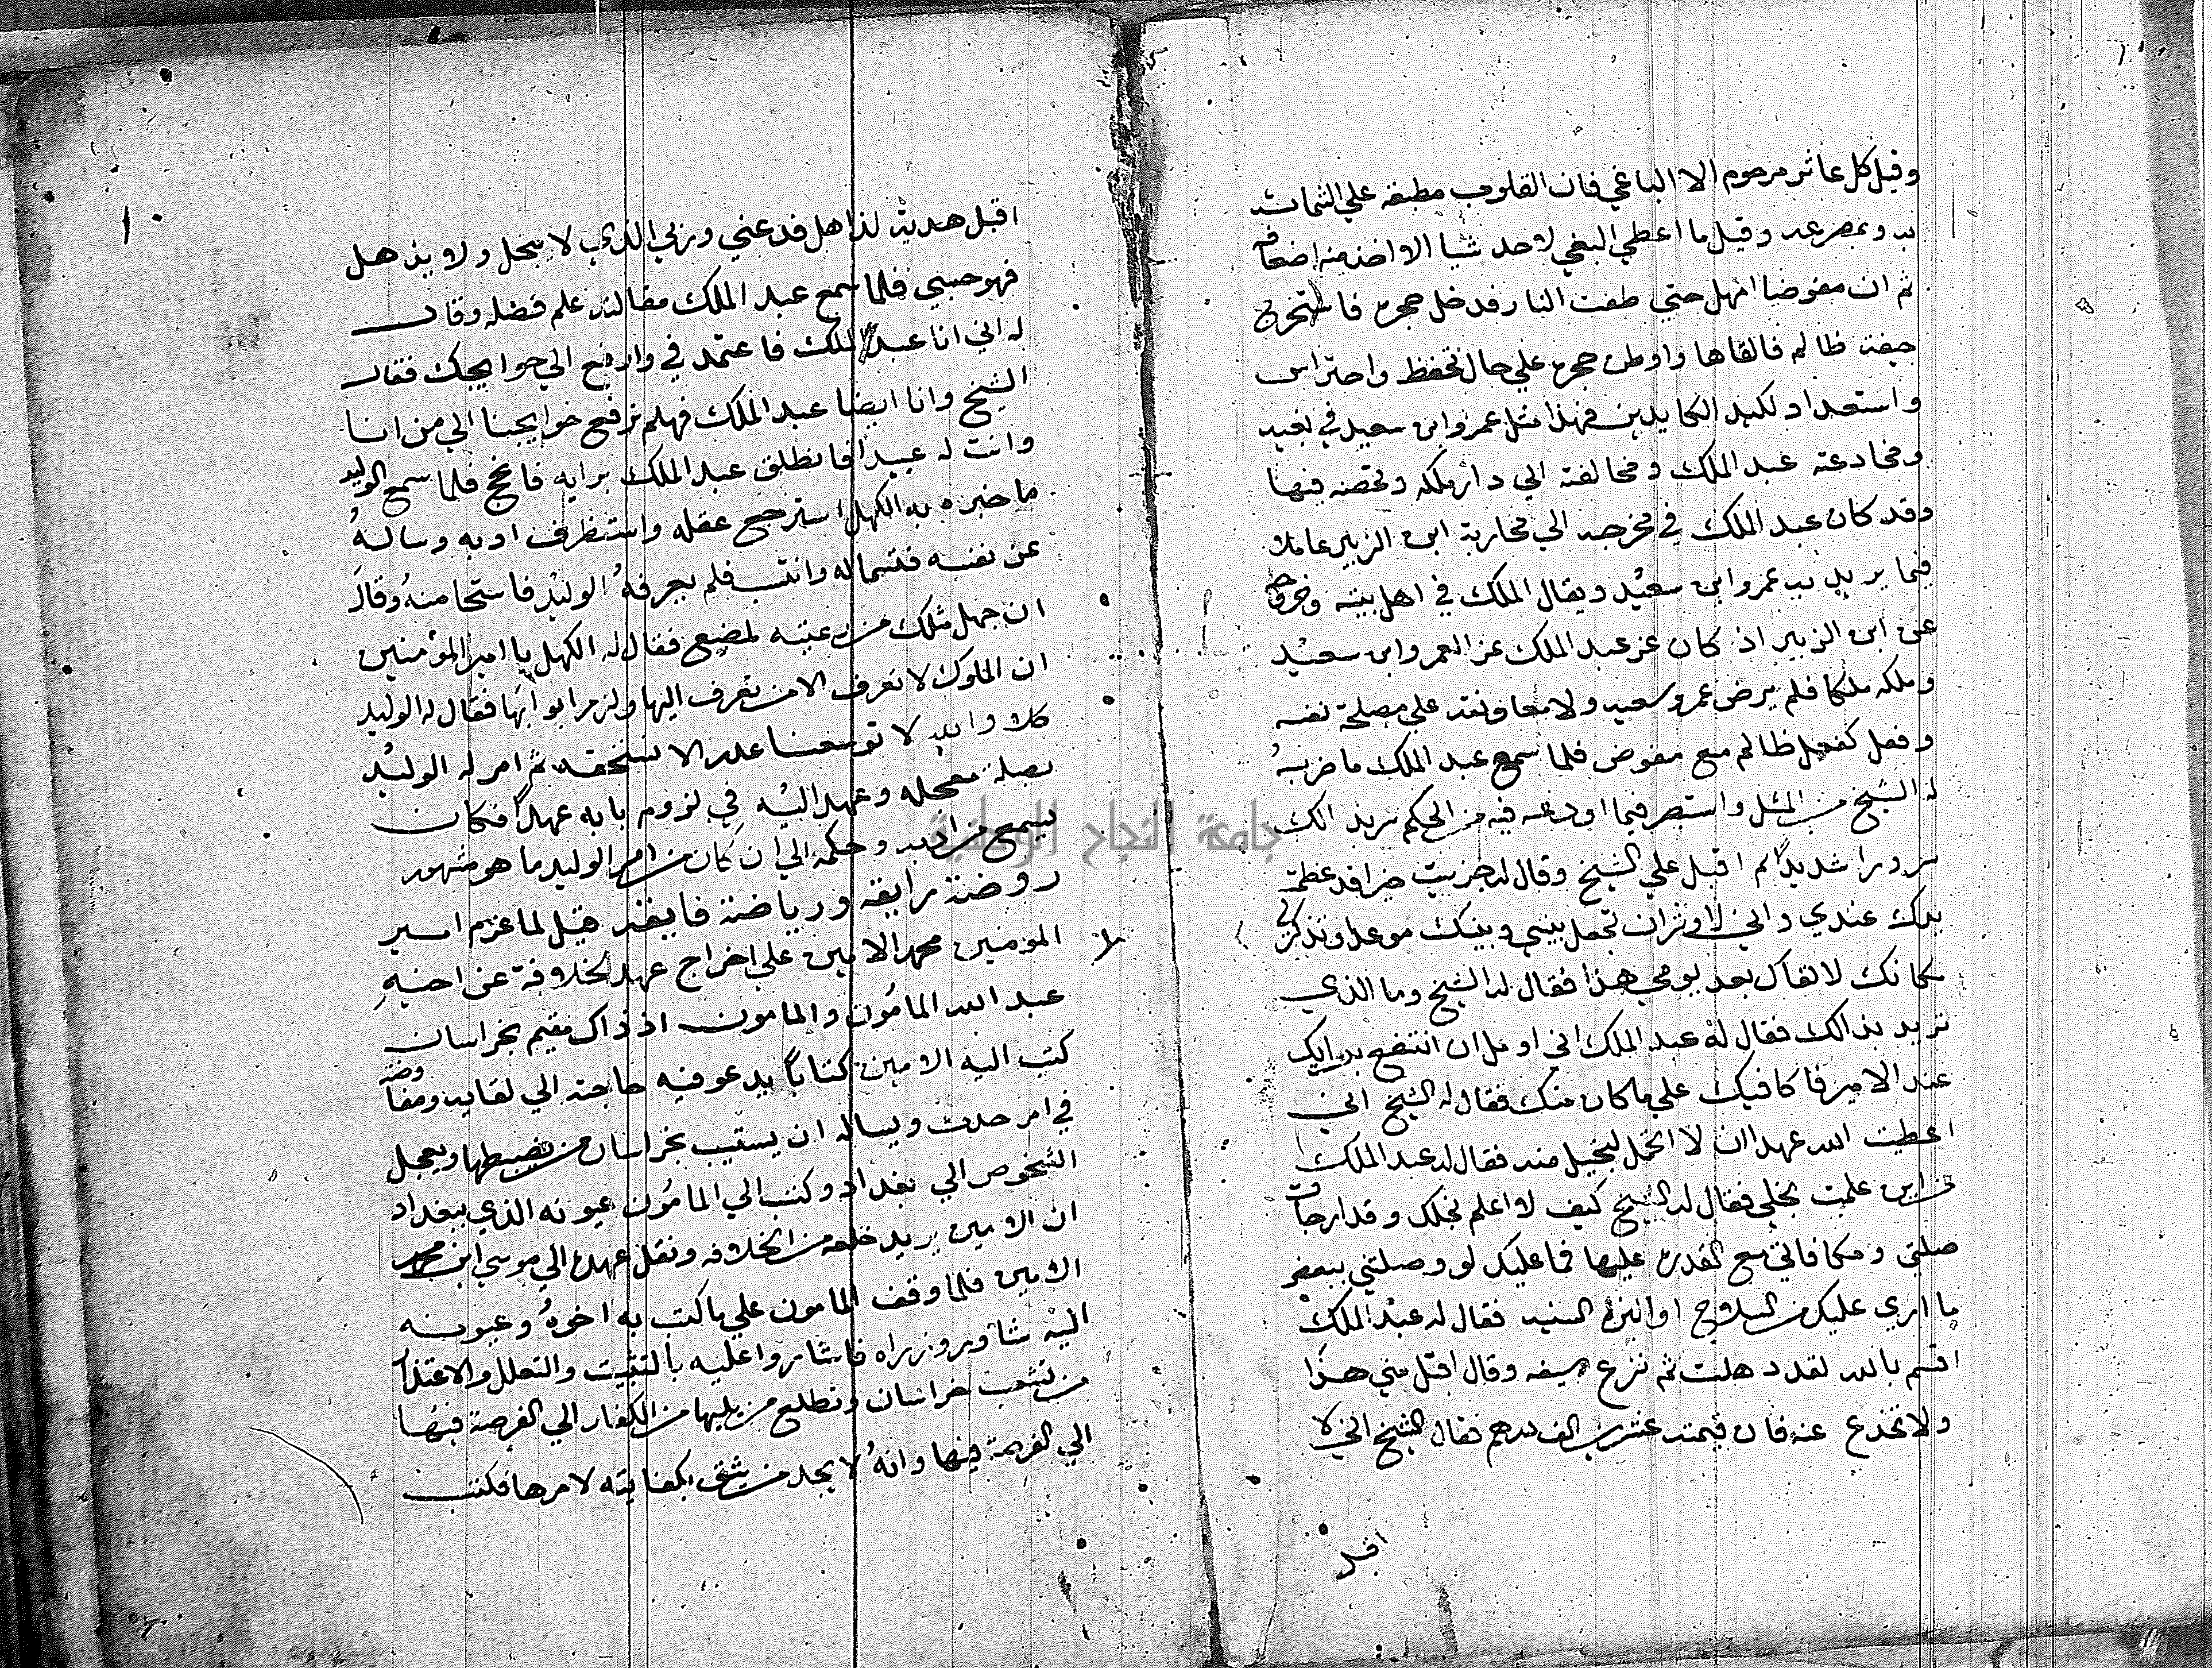 وقيل كل عاثر مرحوم الا الباغي فان القلوب مطبقه علي الشمات
به وبمصرعه وقيل ما اعطي البغي لاحد شيا الا اخذ منه اضعافه
ثم ان مفوضا امهل حتي طفت النار فدخل جحره فاستخرج
جيفة ظالم فالقاها واوطن جحره علي حال تحفظ واحتراس
واستعداد لكيد الكايدين فهذا مثل عمرو ابن سعيد في بغيه
ومخادعته عبد الملك ومخالفته الي دار ملكه وتحصنه فيها
وقد كان عبد الملك في مخرجه الي محاربة ابن الزبير عاملا
فيما يريد به عمرو ابن سعيد وبقال الملك في اهل بيته وخرج
عن ابن الزبير اذ كان عز عبد الملك عز العمرو ابن سعيد
وملكه ملكا فلم يرض عمرو سعيد ولا معاونته علي مصلحة نفسه
وفعل كفعل ظالم مع مفوض فلما سمع عبد الملك ما ضربه
له الشيخ من المثل واستصر فيما اودعه فيه من الحكم سر بذالك
سرورا شديدا ثم اقبل علي الشيخ وقال له جزيت خيرا فقد عظمت
يدك عندي واني لاوثر ان تجعل بيني وبينك موعدا وتذكر لي
مكانك لالقاك بعد يومي هذا فقال له الشيخ وما الذي
تريد بذالك فقال له عبد الملك اني اومل ان انتفع برايك
عند الامير فاكافيك علي ما كان منك فقال له الشيخ اني
اعطيت الله عهدا ان لا احمل لبخيل منه فقال له عبد الملك
من اين علمت بخلي فقال له الشيخ كيف لا اعلم بخلك وقد ارجات
صلتي ومكافاتي مع القدره عليها فما عليك لو وصلتني ببعض
ما اري عليك من السلاح او البزة السنيه فقال له عبد الملك
اقسم بالله لقد ذهلت ثم نزع سيفه وقال اقبل مني هذا
ولا تخدع عنه فان قيمته عشرين الف درهم فقال الشيخ اني لا
اقبل
اقبل هدية لذاهل فدعني وربي الذي لا يبخل ولا يذهل
فهو حسبي فلما سمع عبد الملك مقالته علم فضله وقال
له اني انا عبد الملك فاعتمد في وارفع الي حوايجك فقال
الشيخ وانا ايضا عبد الملك فهلم نرفع حوايجنا الي من انا
وانت له عبيدا فانطلق عبد الملك برايه فانجح فلما سمع الوليد
ما خبره به الكهل استرجح عقله واستظرف ادبه وساله
عن نفسه فتسما له وانتسب فلم يعرفه الوليد فاستحا منه وقال
ان جهل مثلك من رعيته لمضيع فقال له الكهل يا امير المؤمنين
ان الملوك لا تعرف الا من تعرف اليها ولزم ابوابها فقال له الوليد
كلا والله لا توسعنا عذرا لا نستحقه ثم امر له الوليد
بصلة معجله وعهد اليه في لزوم بابه عهدا فكان
يسمع من ادبه وحكمه الي ان كان من امر الوليد ما هو مشهور
روضة رايقه ورياضة فايقه قيل لما عزم امير
المومنين محمد الامين علي اخراج عهد الخلافة عن اخيه
عبد الله المامون والمامون اذ ذاك مقيم بخراسان
كتب اليه الامين كتابا يدعو فيه حاجته الي لقايه ومفاوضه
في امر حدث ويساله ان يستنيب بخراسان من يضبطها ويعجل
الشخوص الي بغداد وكتب الي المامون عيونه الذي ببغداد
ان الامين يريد خلعه من الخلافه ونقل عهده الي موسي ابن محمد
الامين فلما وقف المامون علي ما كتب به اخوه وعيونه
اليه شاور وزراه فاشاروا عليه بالتثبت والتعلل والاعتذار
من تشعب خراسان وتطلع من يليها من الكفار الي الفرصة فيها
الي الفرصة فيها وانه لا يجد من يثق بكفايته لامرها فكتب